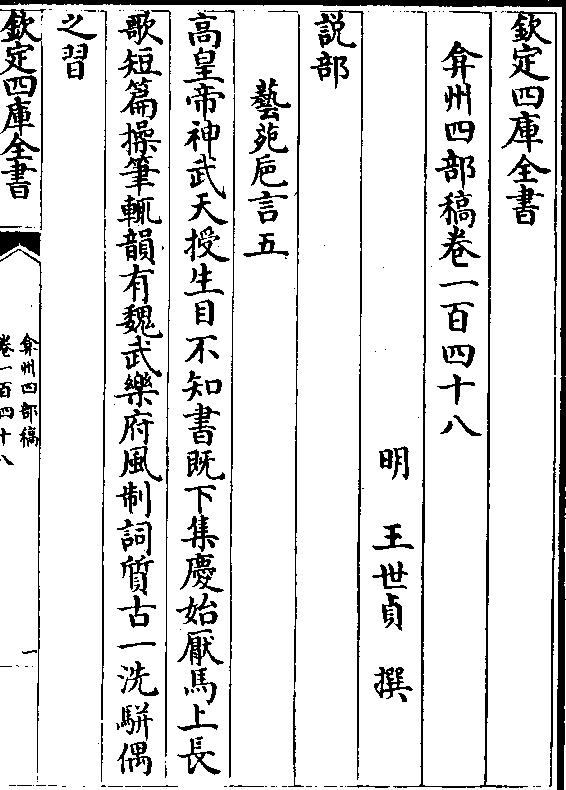 欽定四庫全書
弇州四部稿卷一百四十八
明 王世貞 撰
説部
藝苑巵言五
高皇帝神武天授生目不知書既下集慶始厭馬上長
歌短篇操筆輒韻有魏武樂府風制詞質古一洗駢偶
之習
欽定四庫全書
弇州四部稿
卷一百四十八
一